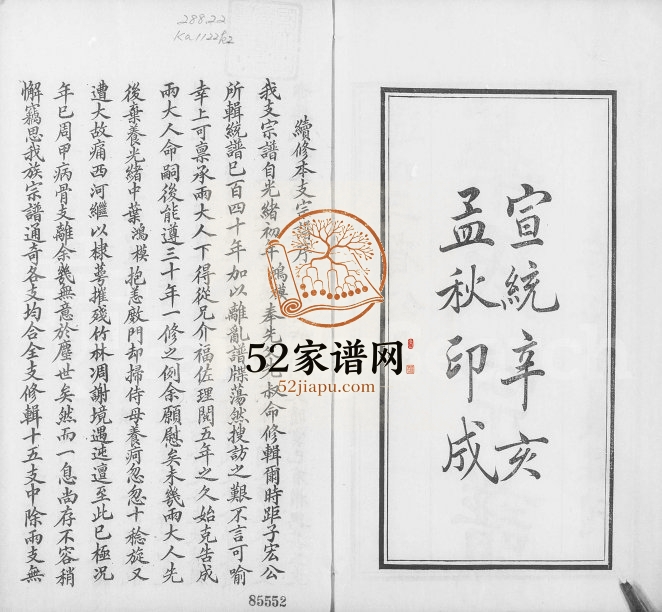 288.22
Ka1122k2
宣統辛亥
孟秋印成
續修本支宗譜序
我支宗譜自光緒初年鴻模奉先 叔命修輯爾時距子宏公
所輯統譜已百四十年加以離亂譜牒蕩然搜訪之艱不言可喻
幸上可稟承兩大人下得從兄介福佐理閱五年之久始克告成
兩大人命嗣後能遵三十年一修之例余願慰矣未幾兩大人先
後棄養光緒中葉鴻模抱恙啟門却掃侍母養疴忽忽十稔旋又
遭大故痛西河繼以棣萼摧殘竹林凋謝境遇迍邅至此已極況
年已周甲病骨支離余幾無意於塵世矣然而一息尚存不容稍
懈竊思我族宗譜通奇各支均合全支修輯十五支中除兩支無
52家谱网
52jiapu.com
85552